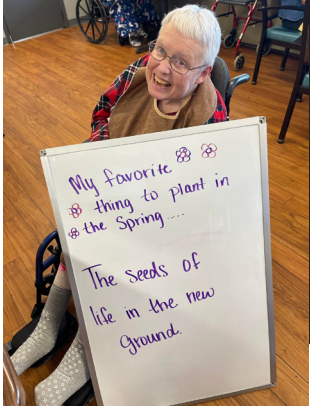 My favorite
thing to plant in
the Spring.....
The seeds of
life in the new
ground.